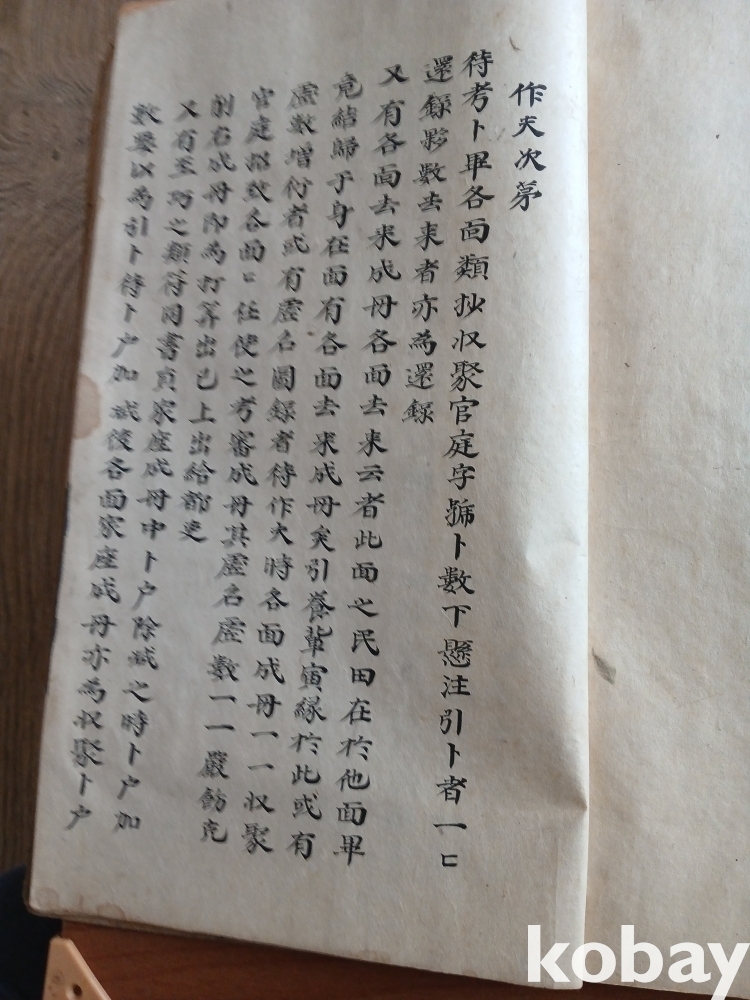 作夫次第
待考卜畢各面類抄収聚官庭字號卜數下懸注引卜者一匕
還錄夥數去来者亦為還錄
又有各面去来成冊各面去来云者此面之民田在扵他面畢
竟結歸于身在面有各面去来成冊矣引養輩寅緣扵此或有
虛數增衍者或有虛名圖錄者待作夫時各面成冊一一収聚
官庭招致各面匕任使之考審成冊其虛名虛數一一嚴飭克
削右成冊即為打筭出已上出給都吏
又有至巧之類符同書員家座成冊中卜户除減之時卜户加
數要以為引卜待卜户加減後各面家座成冊亦為収聚卜户
kobay